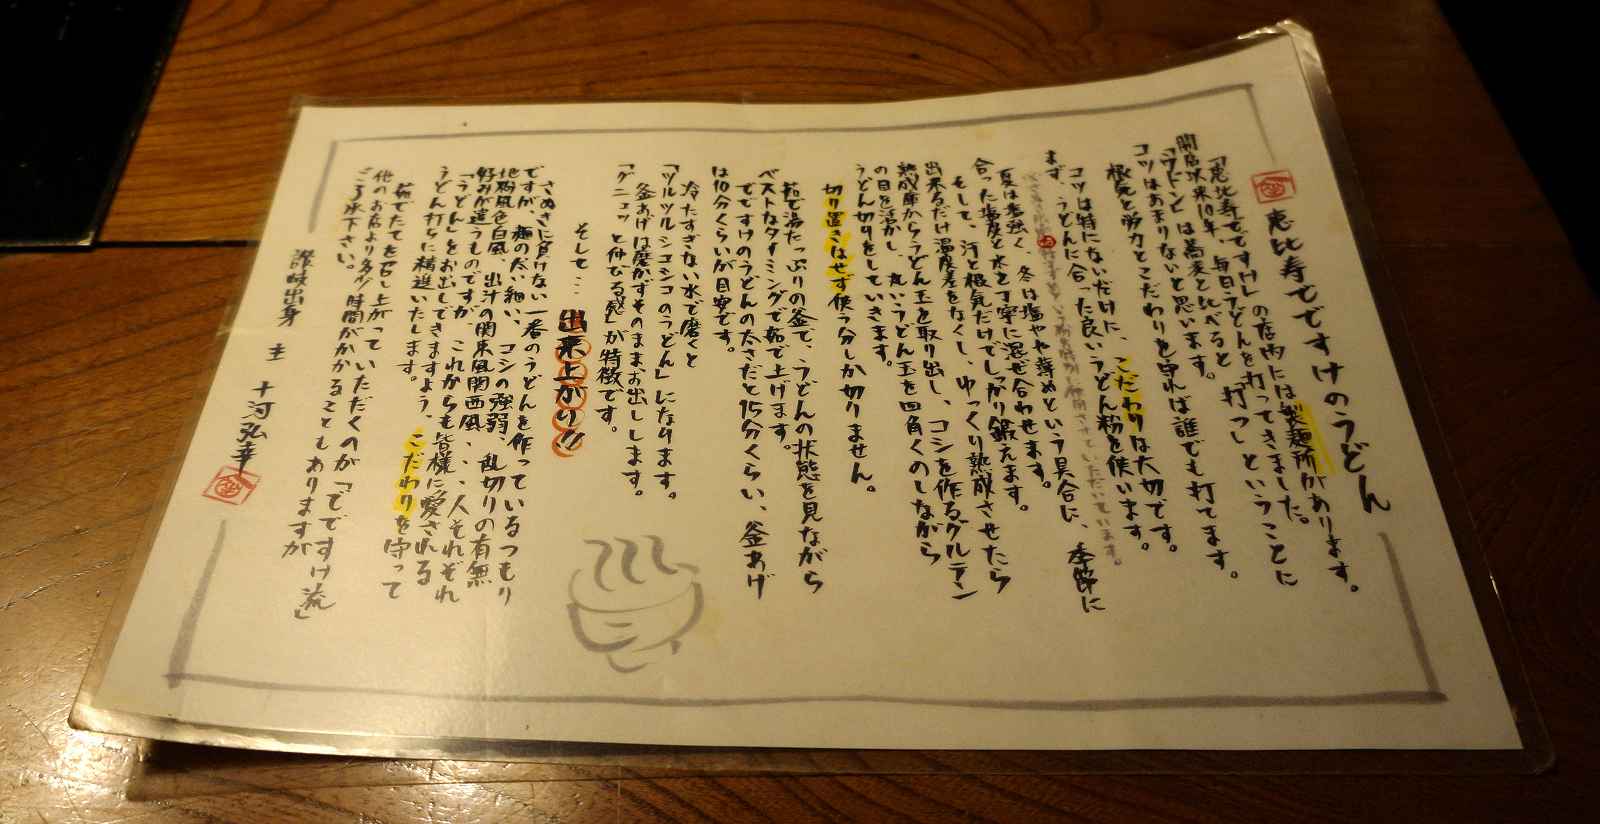 恵比寿ででですけのうどん
「恵比寿でですけ」の店内には製麺所があります。
開店以来10年、毎日うどんを打ってきました。
「ウドン」は蕎麦と比べると「打つ」ということに
コツはあまりないと思います。
根気と労力とこだわりを守れば誰でも打てます。
コツは特にないだけに、こだわりは大切です。
まず、うどんに合った良いうどん粉を使います。
夏は塩強く、冬は塩やや薄めという具合に、季節に
合った塩度と水を丁寧に混ぜ合わせます。
そして、汗と根気だけでしっかり鍛えます。
出来るだけ温度差をなくし、ゆっくり熟成させたら
熟成庫からうどん玉を取り出し、コシを作るグルテン
の目を活かし、丸いうどん玉を四角くのしながら
うどん切りをしていきます。
切り置きはせず使う分しか切りません。
茹で湯たっぷりの釜で、うどんの状態を見ながら
ベストなタイミングで茹で上げます。
でですけのうどんの太さだと15分くらい、釜あげ
は10分くらいが目安です。
冷たすぎない水で磨くと
「ツルツルシコシコのうどん」になります。
釜あげは磨かずそのままお出しします。
「グニュッと伸びる感」が特徴です。
そして…
出来上がり!!
さぬきに負けない一番のうどんを作っているつもり
ですが、麺の太い細い、コシの強弱、乱切りの有無
地粉風色白風、出汁の関東風関西風、、、人それぞれ
好みが違うものですが、これからも皆様に愛される
「うどん」をお出しできますよう、こだわりを守って
うどん打ちに精進いたします。
茹でたてを召し上がっていただくのが「でですけ流」
他のお店より多少時間がかかることもありますが
ご了承下さい。
讃岐出身 主 十河弘幸